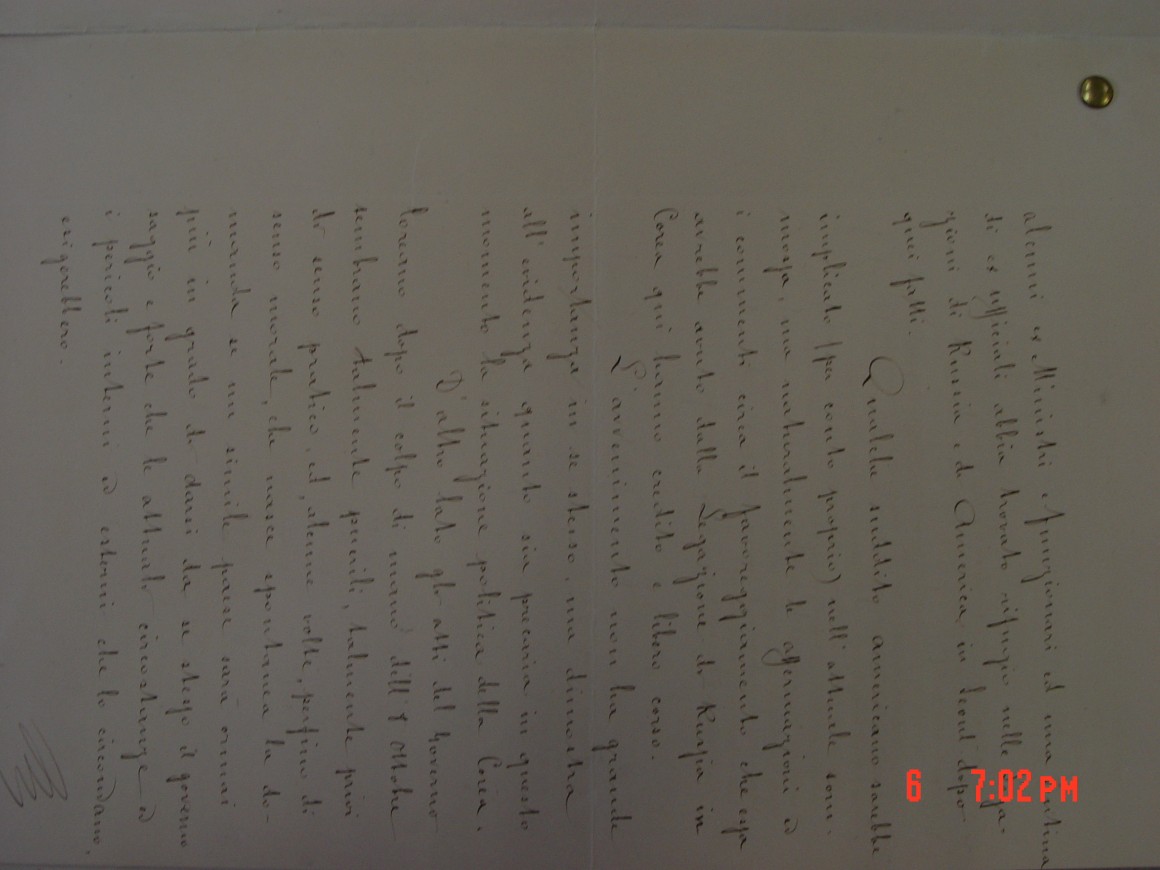 alcuni ex Ministri e funzionari ed una ventina
di ex ufficiali abbia trovato rifugio nelle Lega-
zioni di Russia e di America in Seoul dopo
quei fatti.
Qualche suddito americano sarebbe
implicato (per conto proprio) nell'attuale som-
mossa, ma naturalmente le affermazioni ed
i commenti circa il favoreggiamento che essa
avrebbe avuto dalla Legazione di Russia in
Corea qui hanno credito e libero corso.
L'avvenimento non ha grande
importanza in se stesso, ma dimostra
all'evidenza quanto sia precaria in questo
momento la situazione politica della Corea.
D'altro lato gli atti del Governo
Coreano dopo il colpo di mano dell'8 Ottobre
sembrano talmente puerili, talmente privi
di senso pratico, ed, alcune volte, perfino di
senso morale, che nasce spontanea la do-
manda se un simile paese sarà ormai
più in grado di darsi da se stesso il governo
saggio e forte che le attuali circostanze ed
i pericoli interni ed esterni che lo circondano,
esigerebbero.
6 7:02 PM